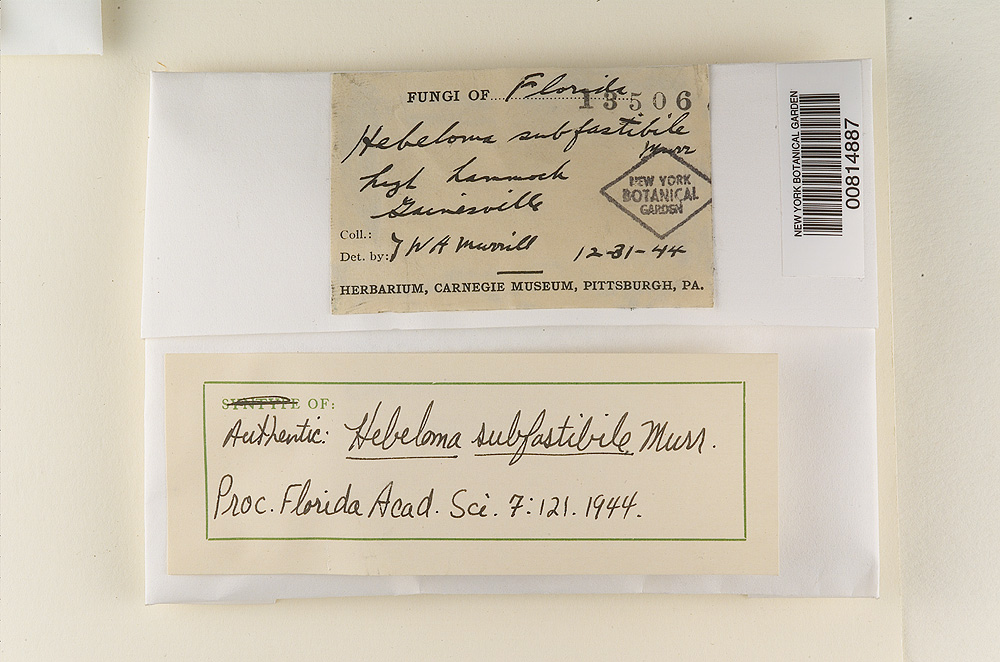 FUNGI OF Florida
13506
Hebeloma subfastibile
Murr
high hammock
Gainesville
NEW YORK
BOTANICAL
GARDEN
Coll.:
Det. by: W A Murrill 12-31-44
HERBARIUM, CARNEGIE MUSEUM, PITTSBURGH, PA.
NEW YORK BOTANICAL GARDEN
00814887
SYNTYPE OF:
Authentic: Hebeloma subfastibile Murr.
Proc. Florida Acad. Sci. 7:121. 1944.